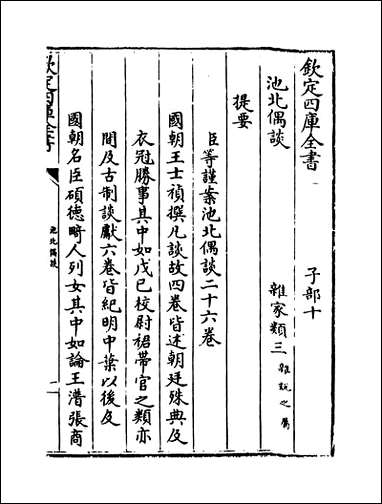 欽定四庫全書　子部十
池北偶談　雜家類三雜說之屬
提要
臣等謹案池北偶談二十六卷
國朝王士禎撰凡談故四卷皆述朝廷殊典及
衣冠勝事其中如戊已校尉裙帶官之類亦
間及古制談獻六卷皆紀明中葉以後及
國朝名臣碩徳畸人列女其中如論王濳張商
欽定四庫全書
池北偶談
一